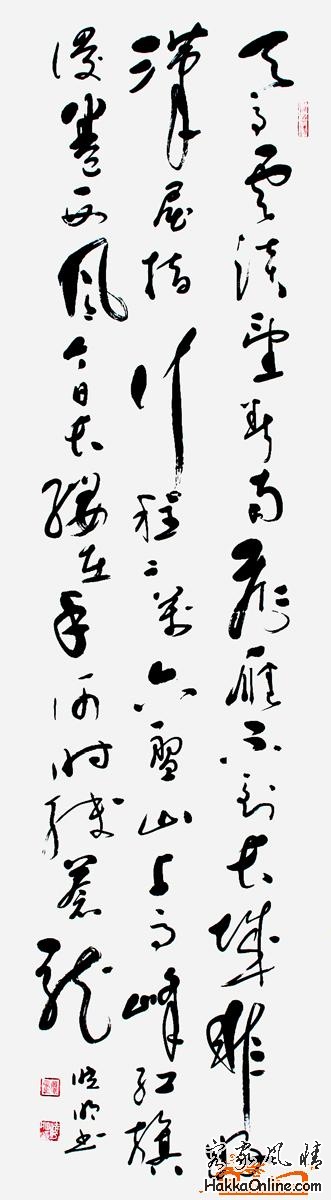 天高雲淡望断南飛雁不到长城非好
漢屈指行程二萬六盤山上高峰红旗
漫卷西風今日长纓在手何时缚蒼龙
书
客家風情
HakkaOnline.com